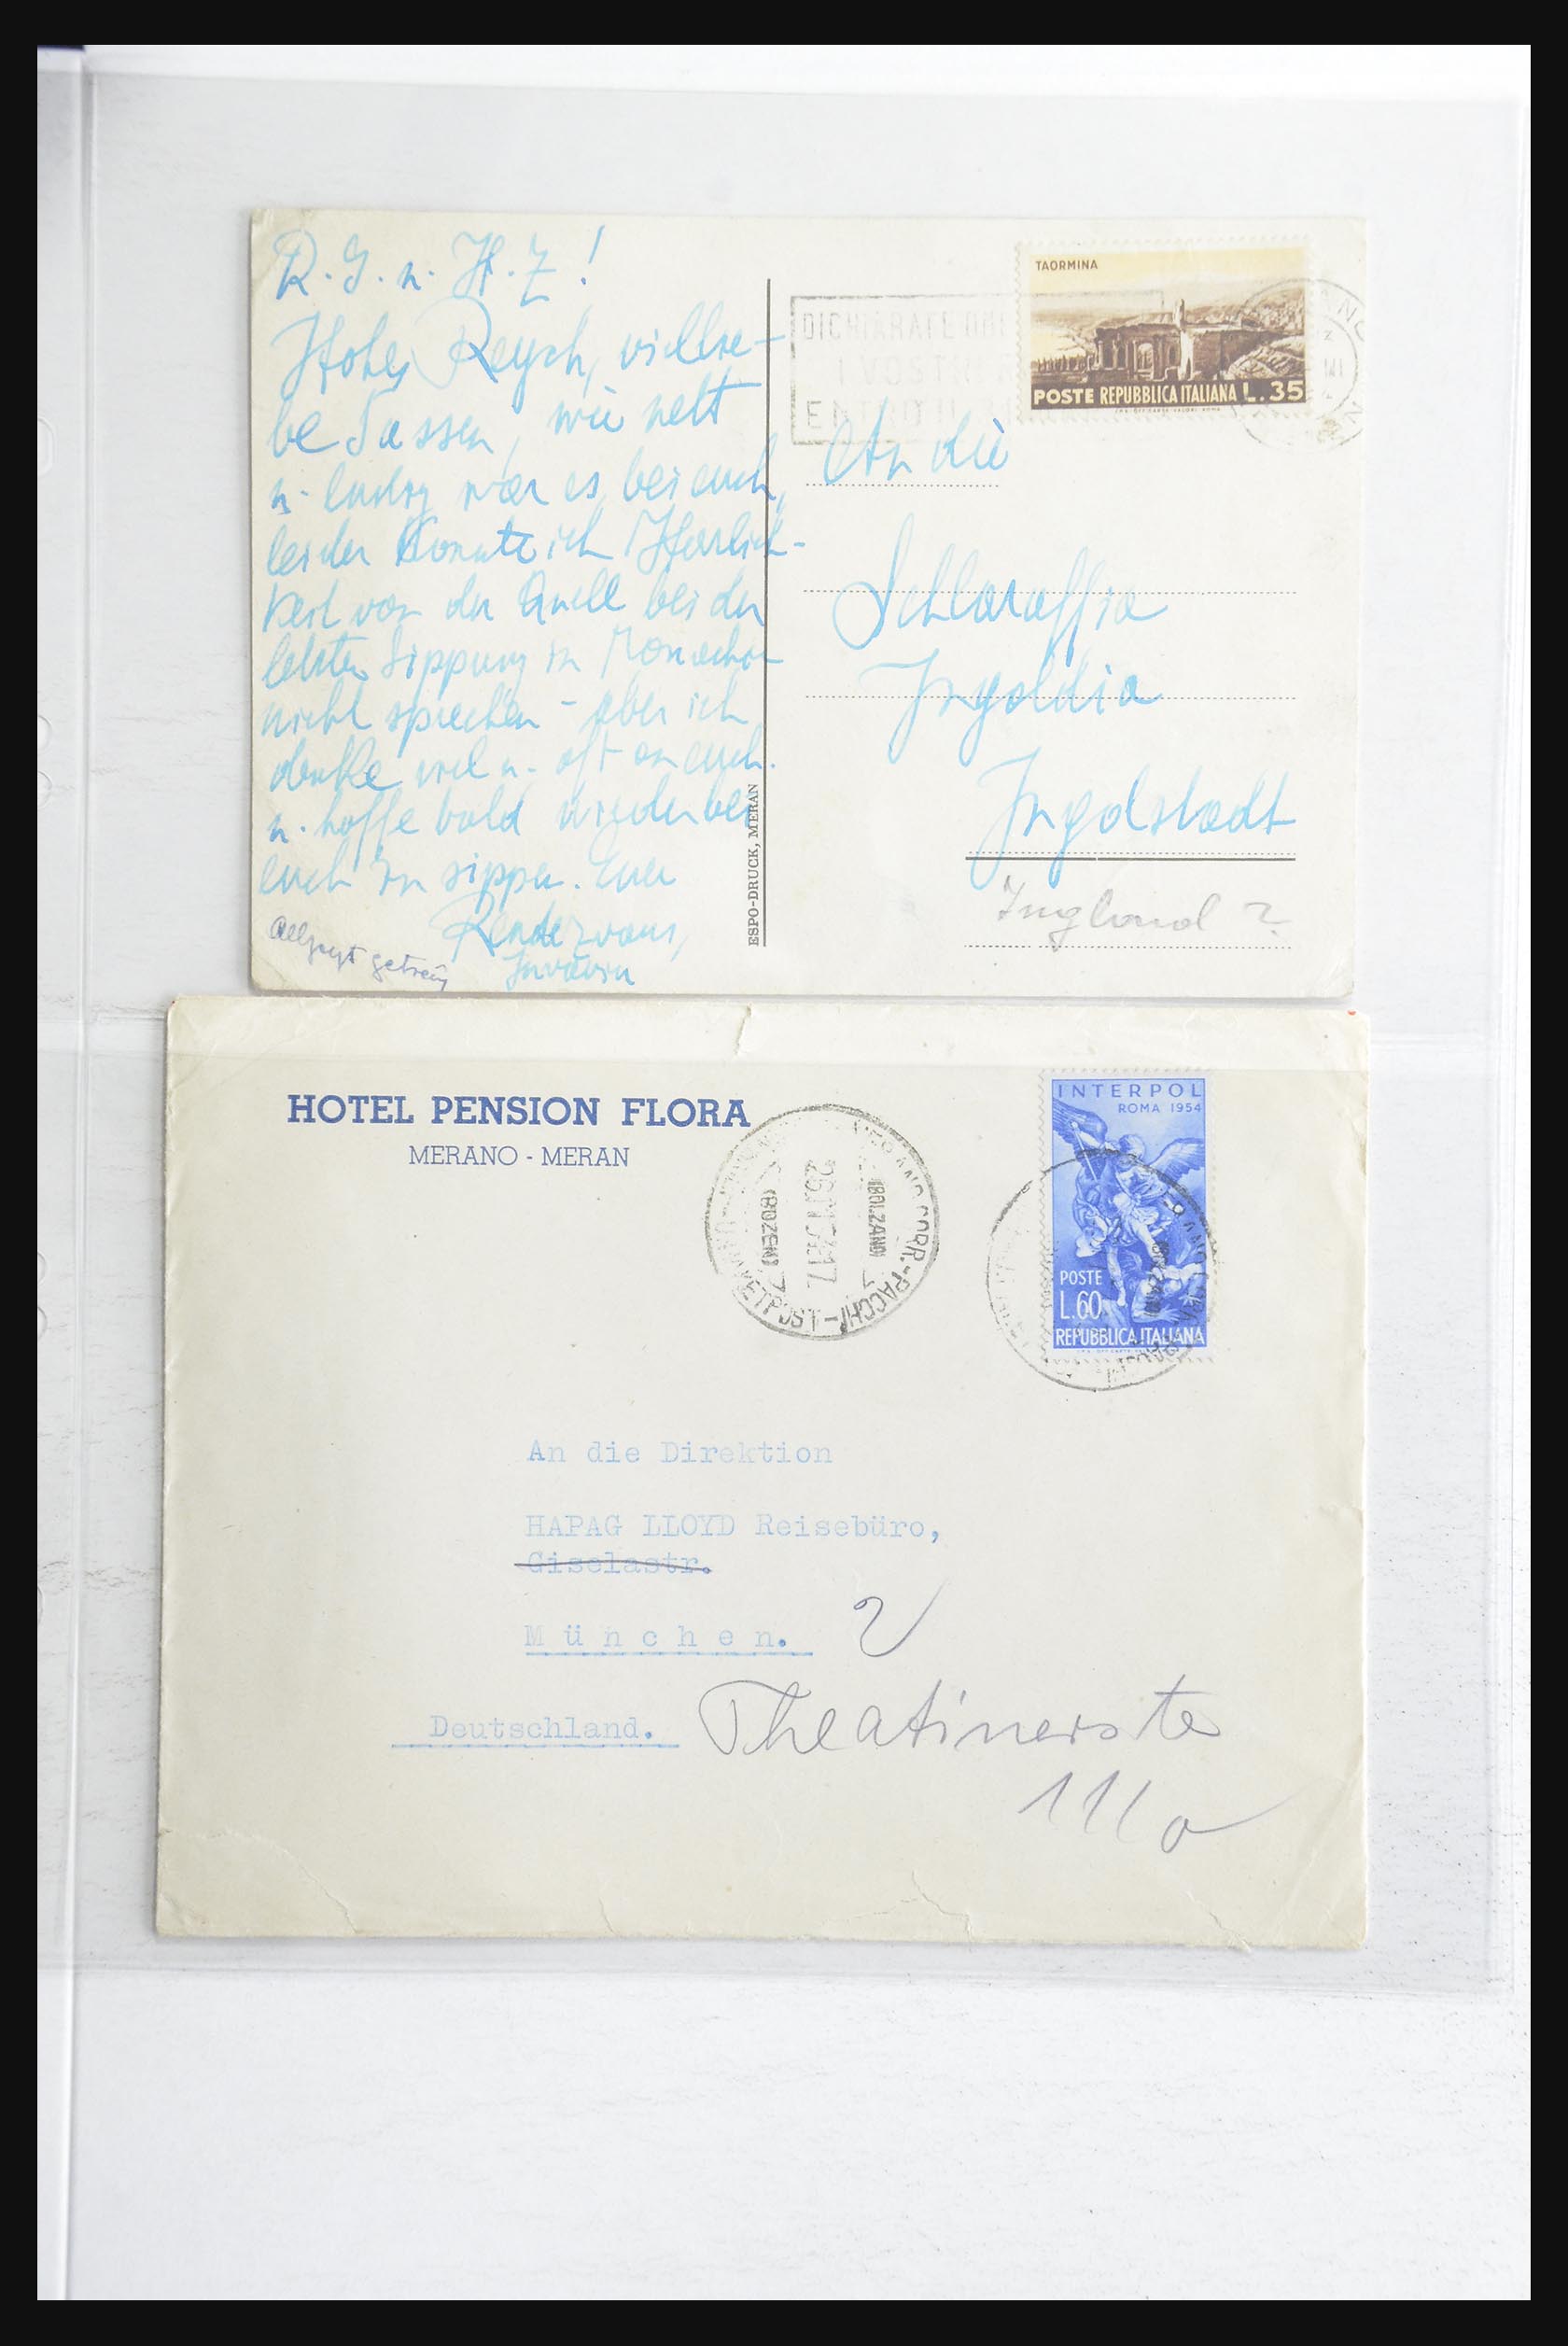 R. G. u. H. Z!
Hohes Reych, viellie-
be Sassen, wie nett
u. lustig war es bei euch,
leider konnte ich Herrlich-
keit von der Quell bei der
letzten Sippung in Monachia
nicht sprechen - aber ich
denke viel u. oft an euch.
u. hoffe bald wieder bei
euch zu sippen. Euer
Rendezvous,
Juvavia
getreu
ESPO-DRUCK, MERAN
DICHIARATE
I VOSTRI
ENTRO IL
TAORMINA
POSTE REPUBBLICA ITALIANA L.35
An die
Schlaraffia
Ingoldia
Ingolstadt
Ingland ?
HOTEL PENSION FLORA
MERANO - MERAN
MERANO CORR.-PACCHI
(BOLZANO)
(BOZEN)
INTERPOL
ROMA 1954
POSTE
L.60
REPUBBLICA ITALIANA
An die Direktion
HAPAG LLOYD Reisebüro,
Giselastr.
München. 2
Deutschland. Theatinerstr